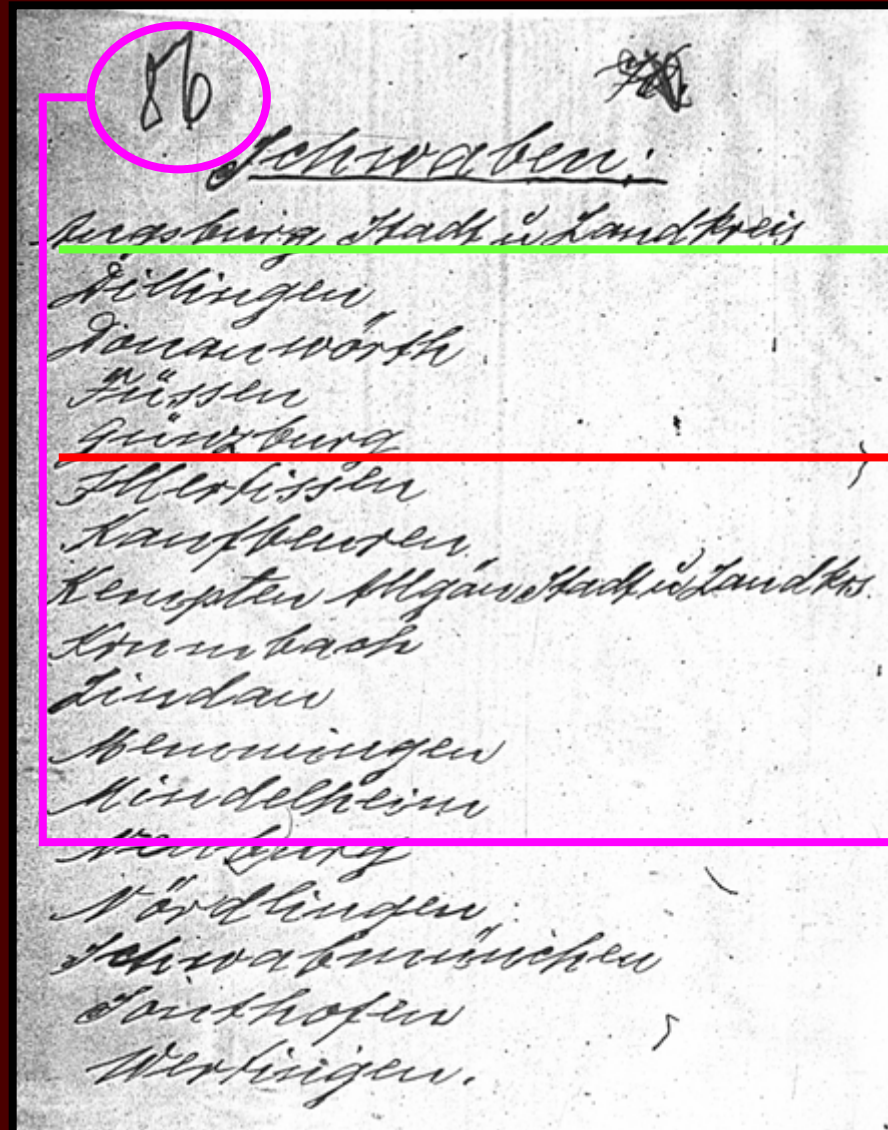 86
Schwaben:
Augsburg Stadt ü Landkreis
Dillingen
Donauwörth
Füssen
Günzburg
Illertissen
Kaufbeuren
Kempten Allgäu Stadt ü Landkrs.
Krumbach
Lindau
Memmingen
Mindelheim
Neuburg
Nördlingen.
Schwabmünchen
Sonthofen
Wertingen.